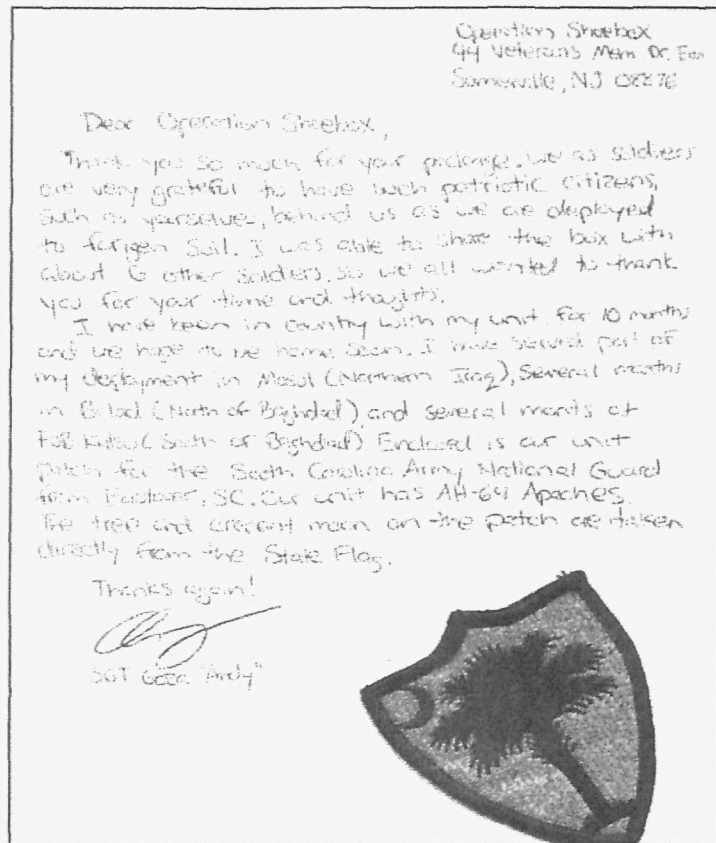 Operation Shoebox
44 Veterans Mem Dr. East
Somerville, NJ 08876
Dear Operation Shoebox,
Thank you so much for your package, we as soldiers
are very grateful to have such patriotic citizens,
such as yourselves, behind us as we are deployed
to forigen soil. I was able to share the box with
about 6 other soldiers, so we all wanted to thank
you for your time and thoughts.
I have been in country with my unit for 10 months
and we hope to be home soon. I have served part of
my deployment in Mosul (Northern Iraq), several months
in Balad (North of Baghdad), and several months at
FOB Kalsu (South of Baghdad). Enclosed is our unit
patch for the South Carolina Army National Guard
from Eastover, SC. Our unit has AH-64 Apaches.
The tree and crecent moon on the patch are taken
directly from the State Flag.
Thanks again!
SGT "Andy"